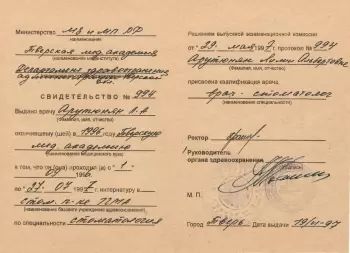 Министерство МЗ и МП РФ
(наименование)
Тверская мед. академия
(наименование института)
СВИДЕТЕЛЬСТВО № 994
Выдано врачу Арутюнян Л.А
(фамилия, имя, отчество)
окончившему (шей) в 1996 году Тверскую
мед академию
(наименование медицинского вуза)
в том, что он (она) проходил (а) с "1"
09 1996
по " 27.07 1997 г. интернатуру в
стом. п-ке ТГМА
(наименование базового учреждения здравоохранения)
по специальности стоматология
Решением выпускной экзаменационной комиссии
от " 29. мая 1997 г. протокол № 994
Арутюнян
(фамилия, имя, отчество)
присвоена квалификация врача
врач - стоматолог
(наименование специальности)
Ректор
Руководитель
органа здравоохранения
М. П.
Город Тверь Дата выдачи